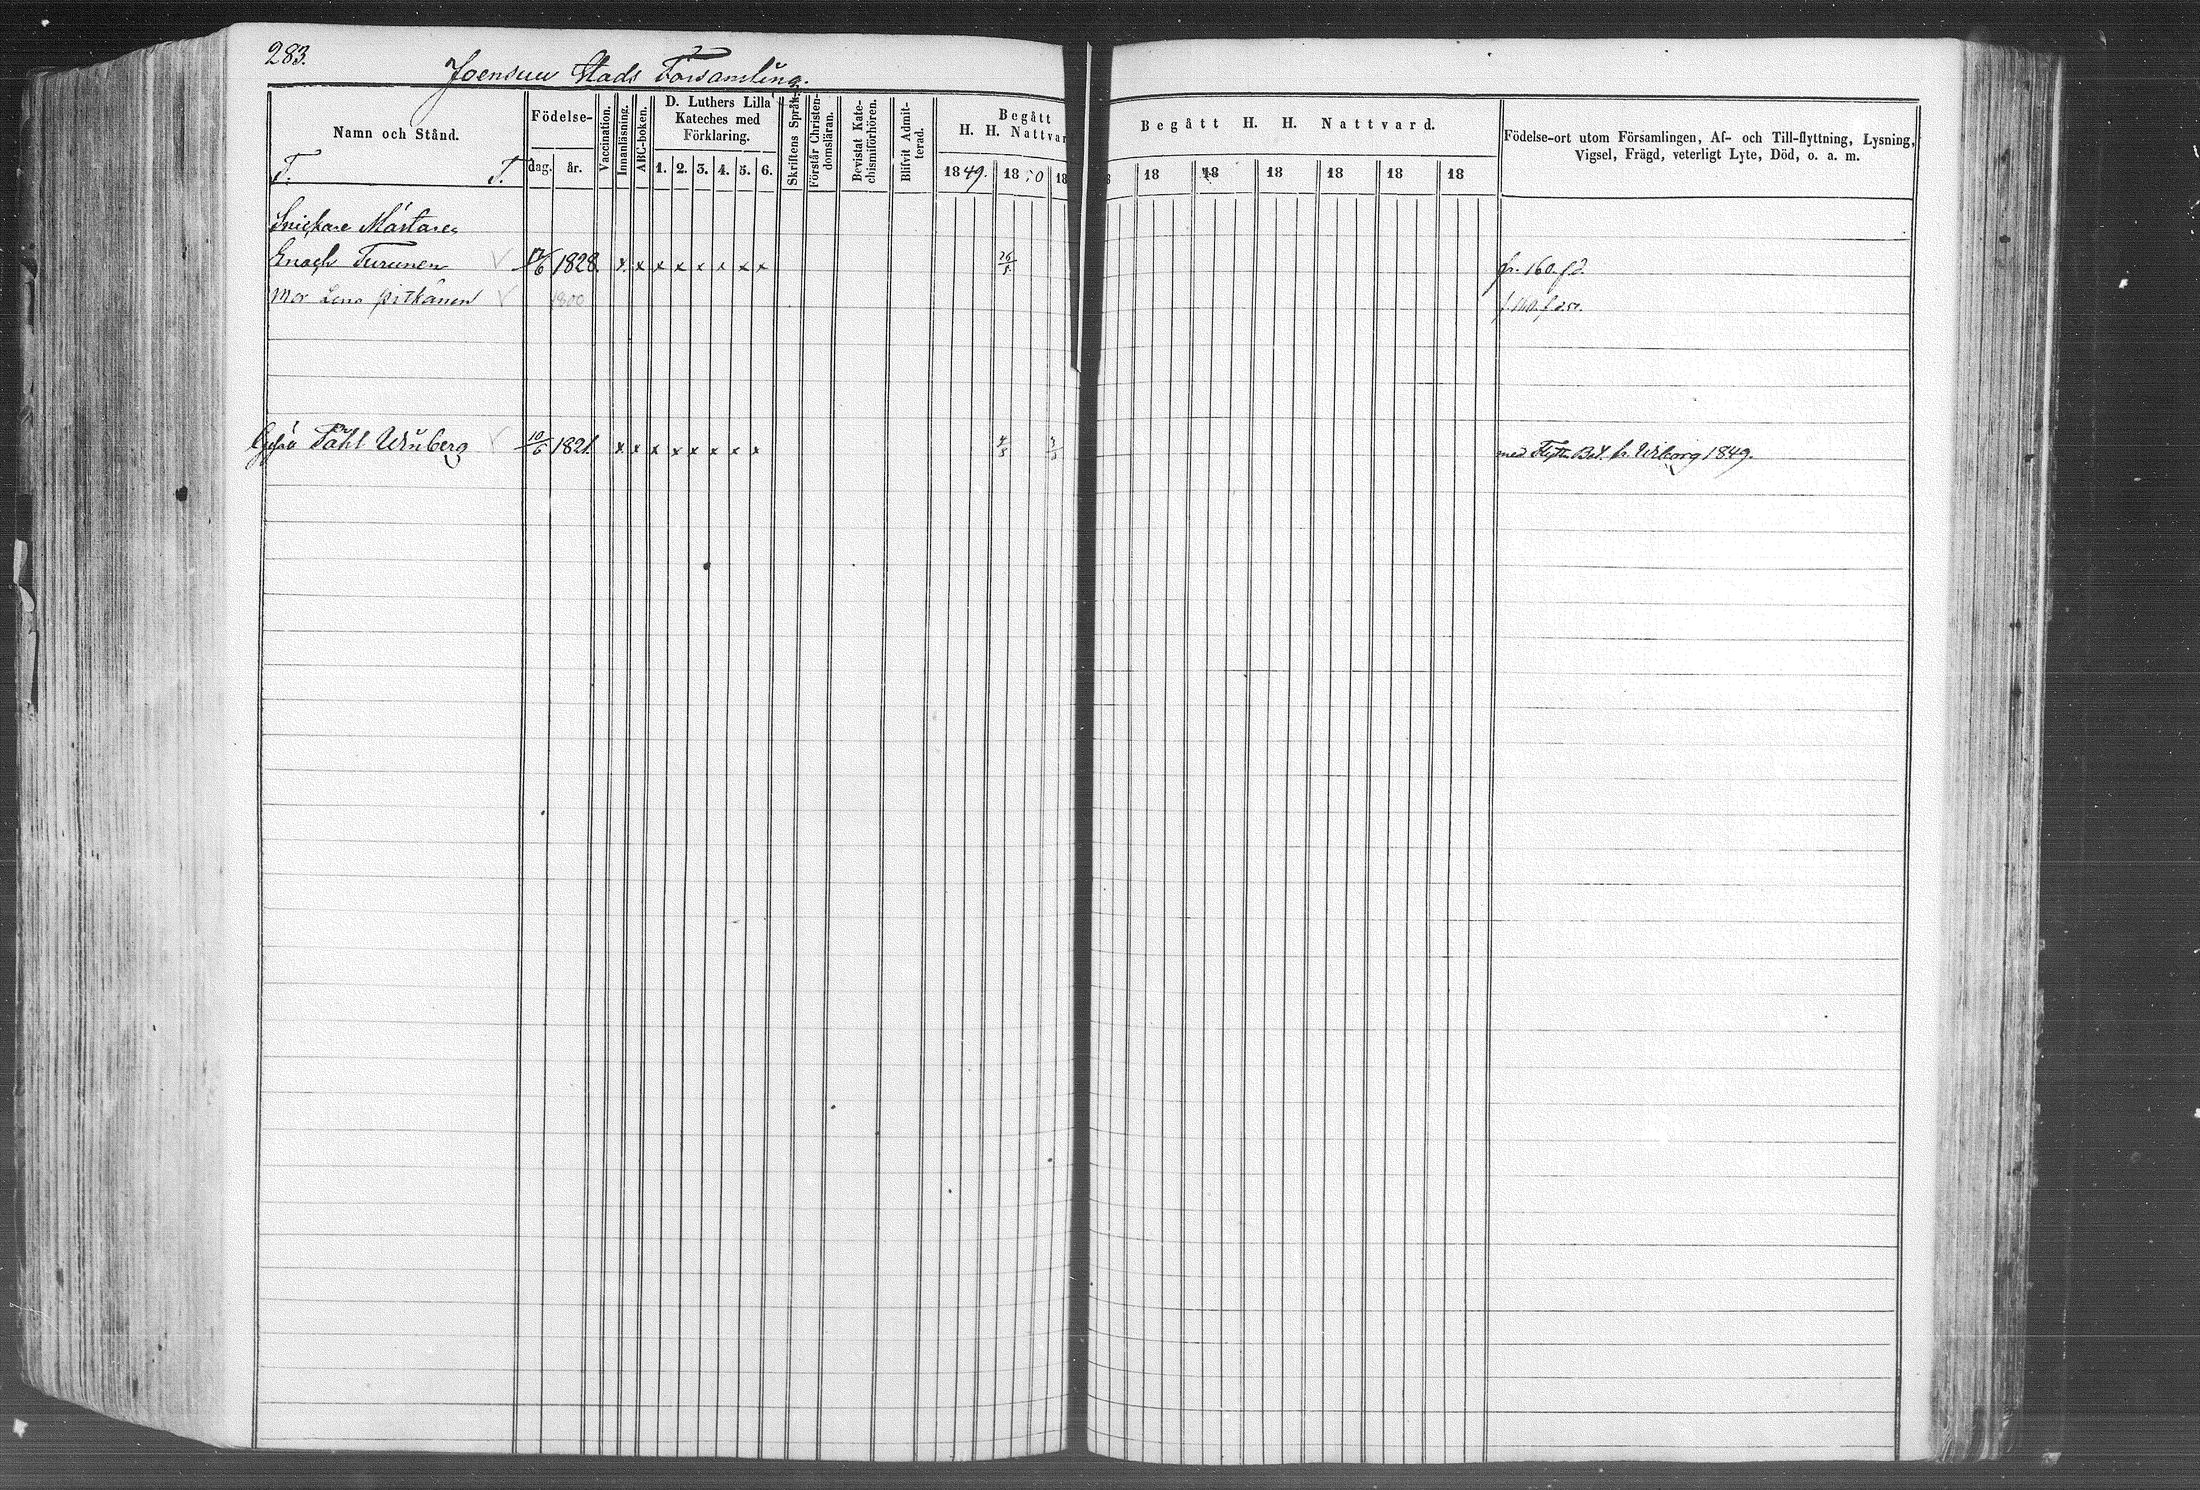 283.
Joensuu Stads Församling.
Namn och Stånd.
T. T.
Födelse-
dag. år.
Vaccination.
Innanläsning.
ABC-boken.
D. Luthers Lilla
Kateches med
Förklaring.
1. 2. 3. 4. 5. 6.
Skriftens Språk.
Förstår Christen-
domsläran.
Bevistat Kate-
chismiförhören.
Blifvit Admit-
terad.
Begått
H. H. Nattvar
1849. 1850 18
Begått H. H. Nattvard.
8 18 18 18 18 18 18
Födelse-ort utom Församlingen, Af- och Till-flyttning, Lysning,
Vigsel, Frägd, veterligt Lyte, Död, o. a. m.
Snickare Mästaren
Enoch Turunen 1828. x x x x x x x x 26/5 fr. 160. f.d.
Mor Lena Pitkänen 1800
Påhl Winberg 10/6 1821. x x x x x x x x 4/5 med Flyttn Bet. fr. Wiborg 1849.